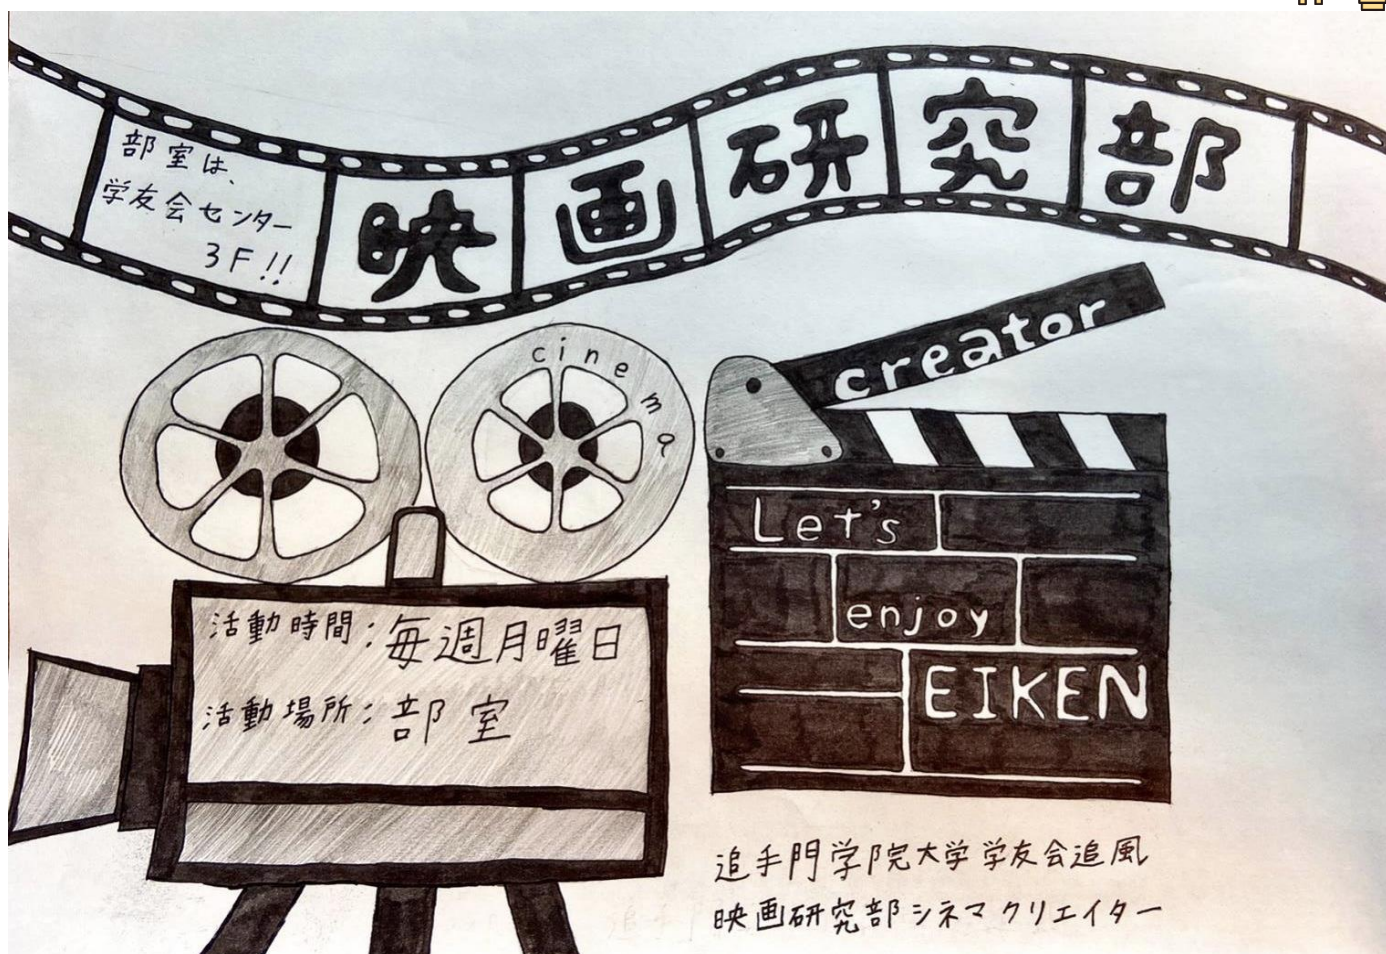 部室は、
学友会センター
3F!!
映画研究部
cinema
creator
Let's
enjoy
EIKEN
活動時間:毎週月曜日
活動場所:部室
追手門学院大学学友会追風
映画研究部シネマクリエイター